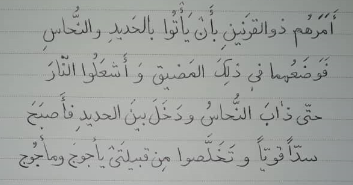 أَمَرَهُم ذوالقرنينِ بِأَنْ يَأْتُوا بِالحَديدِ والنُّحاسِ
فَوَضَعَهما في ذلِكَ المَضيقِ وَ أَشعَلُوا النّارَ
حتّی ذابَ النُّحاسُ و دَخَلَ بينَ الحديدِ فأَصبَحَ
سدّاً قويّاً و تَخَلَّصوا مِن قبيلَتَیْ يأجوجَ ومأجُوجَ